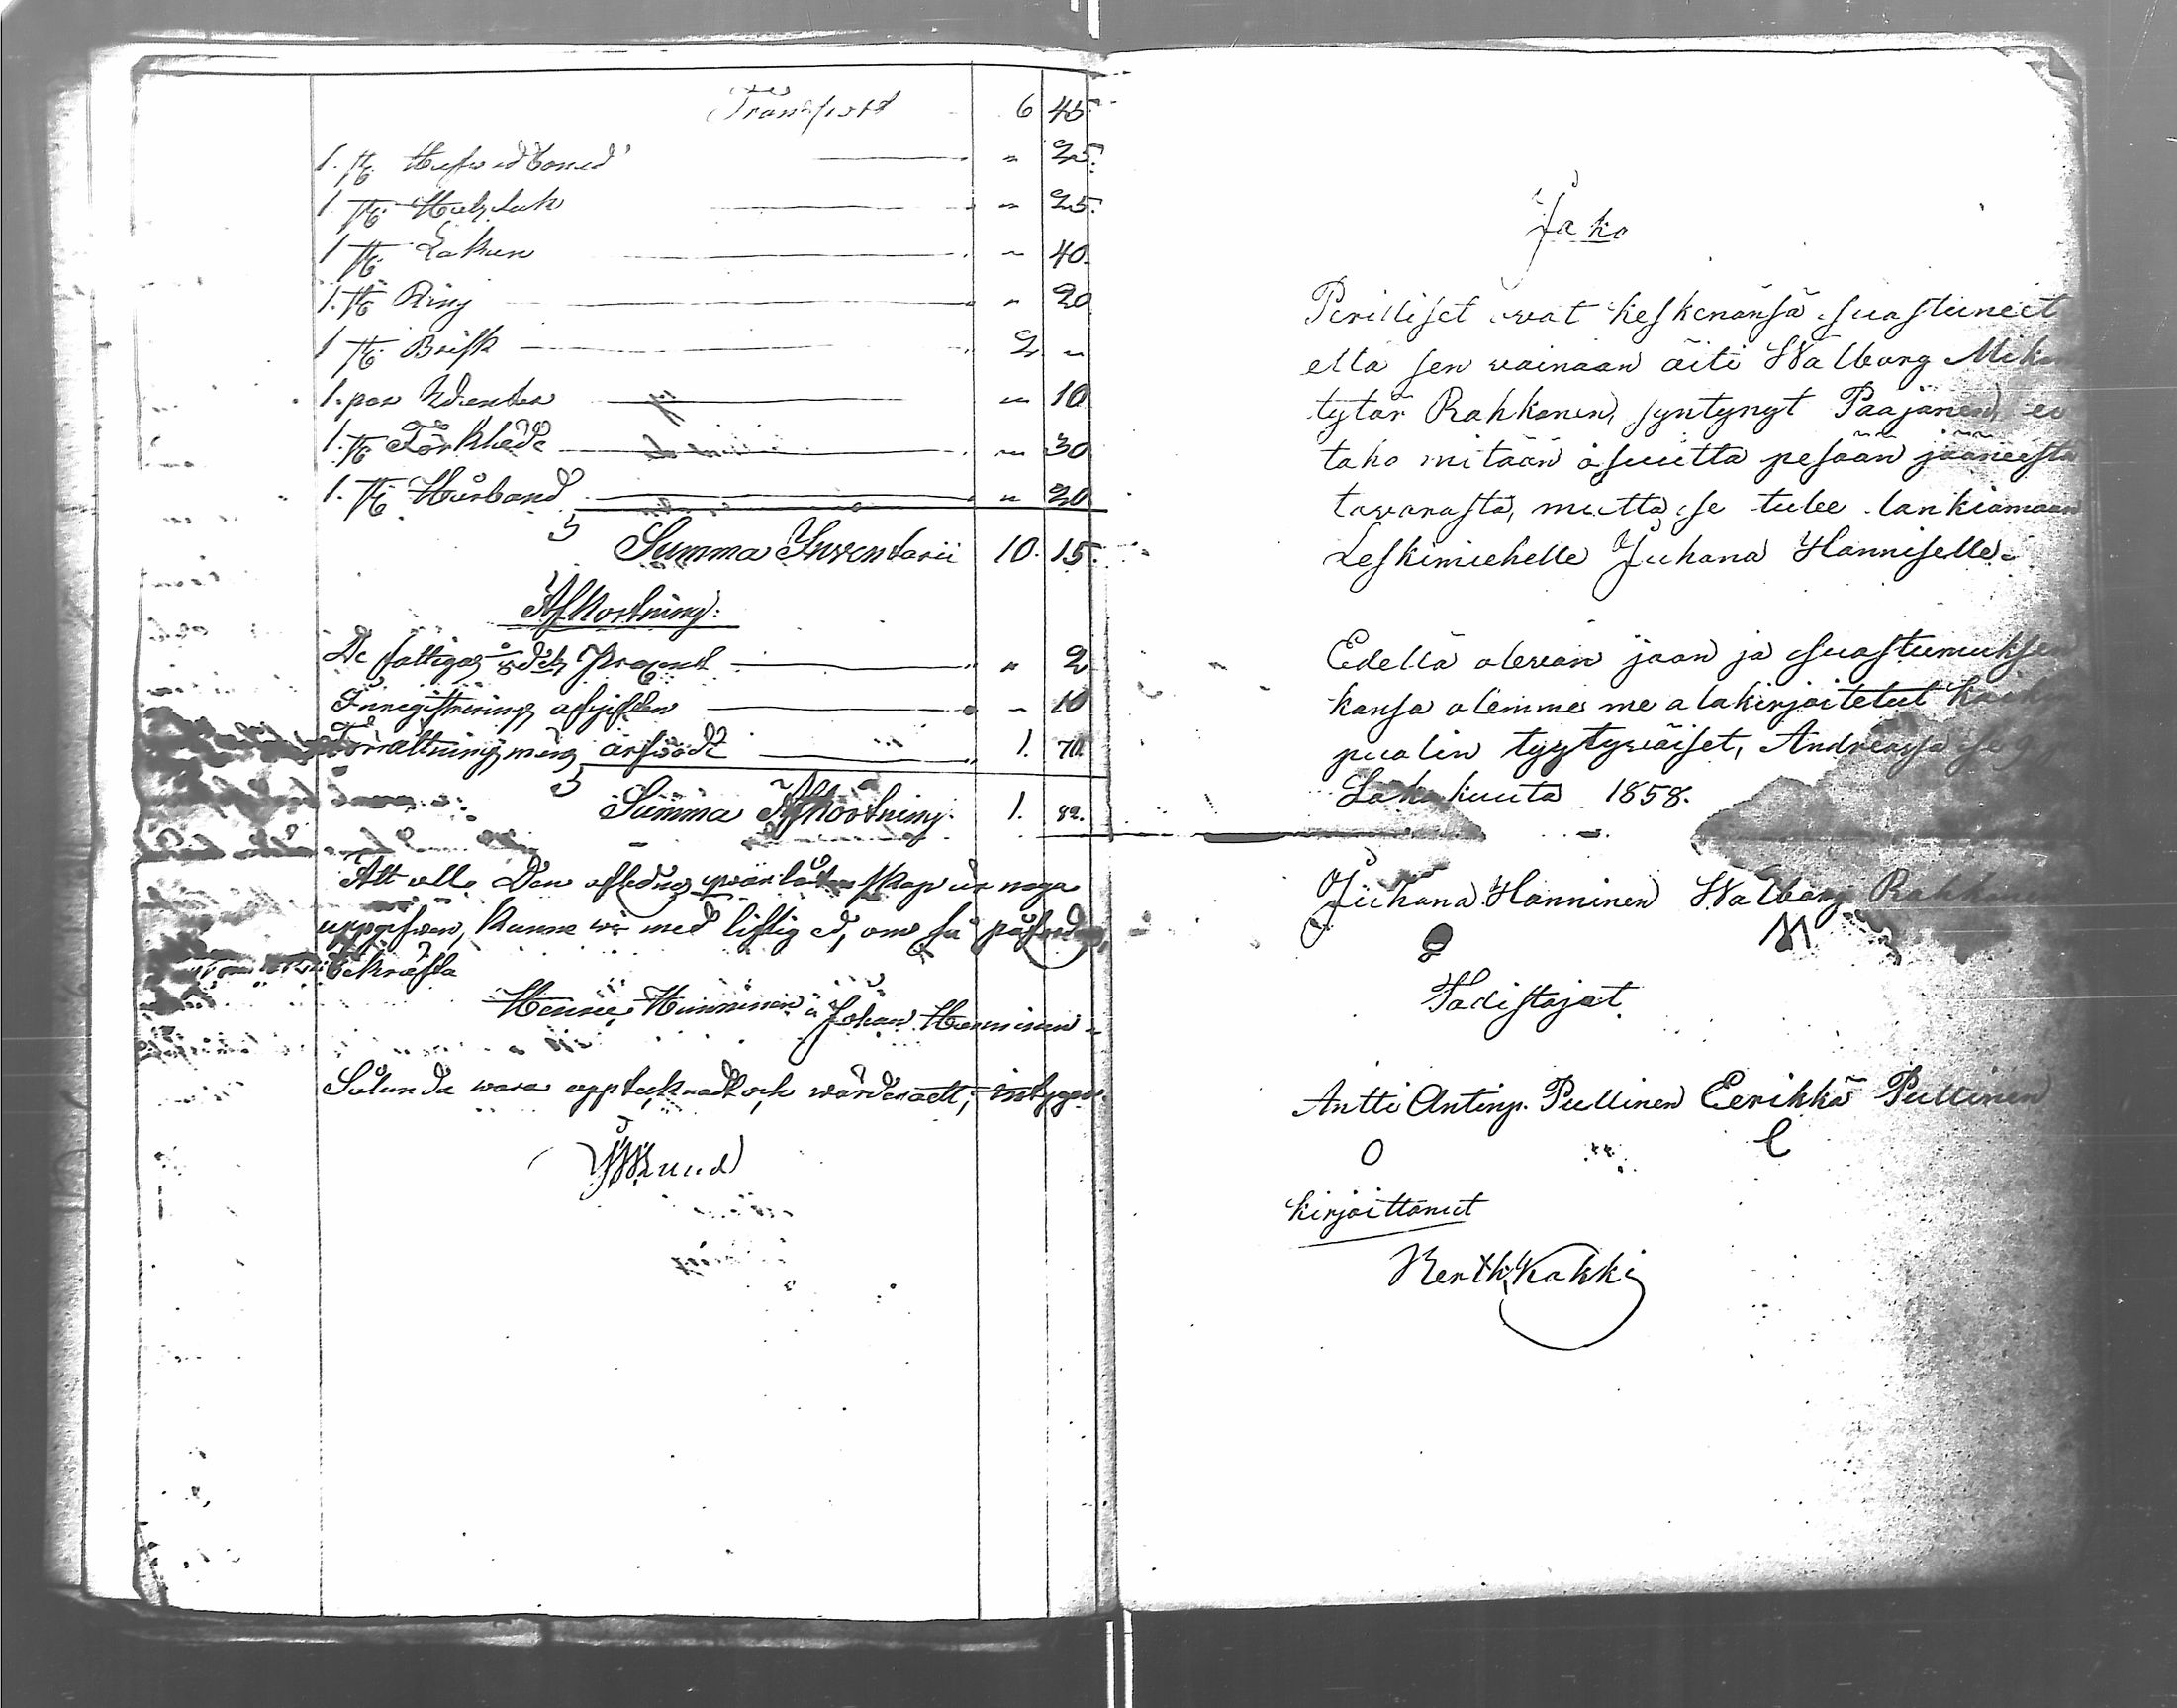 Transport 6 45.
1. st. Hufvudbonad " 25.
1 st. Halsduk " 25.
1 st. Lakan " 40.
1. st. Ring " 20
1 st. Brisk 2 "
1. par Wantar " 10
1. st. Förkläde " 30
1. st. Hårband " 20
Summa Inventarii 10. 15.
Afkortning:
De fattigas procent " 2
Inregistrerings afgiften " 10
Förrättningsmäns arfwode 1. 70.
Summa Afkortning. 1. 82.
Att all Den aflednas qwarlåtenskap är noga
uppgifwen, kunna wi med liflig ed, om så påfordras,
bekräfta
Hanninen Johan Hanninen
Sålunda wara upptecknadt och wärderadt, intygar.
Jako
Perilliset owat keskenänsä suostuneet
että sen wainaan äiti Walborg Mikon
tytär Rahkonen, syntynyt Paajanen, ei
taho mitään osuutta pesään jääneestä
tawarasta, mutta se tulee lankiamaan
Leskimiehelle Juhana Hanniselle.
Edellä olewan jaon ja suostumuksen
kansa olemme me alakirjoitetut
puolin tyytywäiset,
Lokakuuta 1858.
Juhana Hanninen Walborg Rahkonen
Todistajat
Antti Antinp. Pullinen Eerikkä Pullinen
O C
kirjoittanut
Kakki